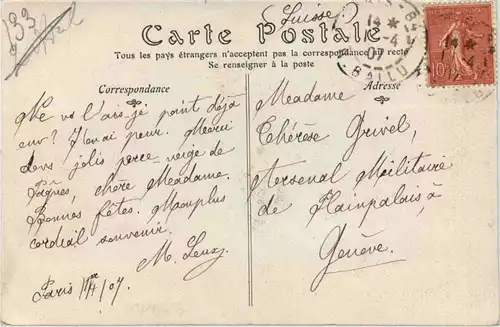 133
(Suisse)
Carte Postale
Tous les pays étrangers n'acceptent pas la correspondance au recto
Se renseigner à la poste
Correspondance
Ne vs l'ais-je point déjà
env? J'en ai peur. Merci
des jolis perce-neige de
Pâques, chère Madame.
Bonnes fêtes. Mon plus
cordial souvenir.
Paris /07
Adresse
Madame
Thérèse Grivel,
Arsenal Militaire
de Plainpalais, à
Genève.
14
-4
07
10